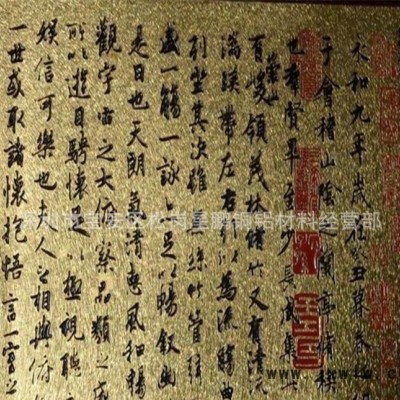 永和九年歲在癸丑暮春初
于會稽山陰之蘭亭脩禊
也群賢畢至少長咸集此
崇山
有峻領茂林脩竹又有清流
湍帶左右引以為流觴曲
列坐其次雖無絲竹管弦
盛一觴一詠亦足以暢敘幽
是日也天朗氣清惠風和暢
觀宇宙之大俯察品類之盛
所以遊目騁懷足以極視聽
娛信可樂也夫人之相與俯
一世或取諸懷抱悟言一室之
深圳市宝安区松岗星鹏铜铝材料经营部